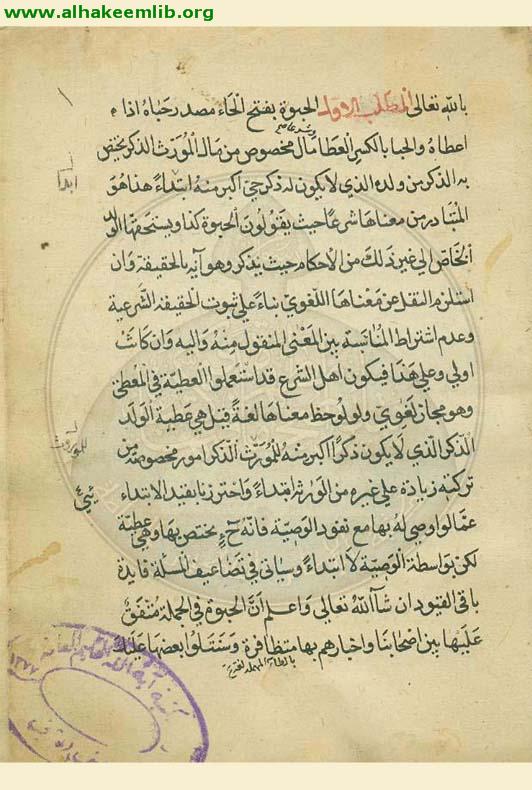 www.alhakeemlib.org
بالله تعالى المطلب الاول الحبوة بفتح الحاء مصدر حباه اذا
اعطاه والحبا بالكسر العطا مال مخصوص من مال المورث الذكر يختص
به الذكر من ولده الذي لا يكون له ذكر حي اكبر منه ابتداء هذا هو
المتبادر من معناها شرعا حيث يقولون الحبوة كذا ويستحقها الولد
الخاص الى غير ذلك من الاحكام حيث يذكروه وآية الحقيقة وان
استلزم النقل عن معناها اللغوي بناء على ثبوت الحقيقة الشرعية
وعدم اشتراط المناسبة بين المعنى المنقول منه واليه وان كانت
اولى وعلى هذا فيكون اهل الشرع قد استعملوا العطية في المعطى
وهو مجاز لغوي ولو لوحظ معناها لغة قيل هي عطية الولد
الذكر الذي لا يكون ذكرا اكبر منه للمورث الذكر امور مخصوصة من
تركته زيادة على غيره من الورثة ابتداء واحترزنا بقيد الابتداء
عما لو اوصى له بها مع نفوذ الوصية فانه ح يختص بها وهي عطية
لكن بواسطة الوصية لا ابتداء وسياتي في تضاعيف المسئلة فايدة
باقى القيود ان شاء الله تعالى واعلم ان الحبوة في الجملة متفق
عليها بين اصحابنا واخبارهم بها متظافرة وسنتلوا بعضها عليك
ابدا
للموروث
مكتبة آية الله الحكيم العامة
١٣٧٧